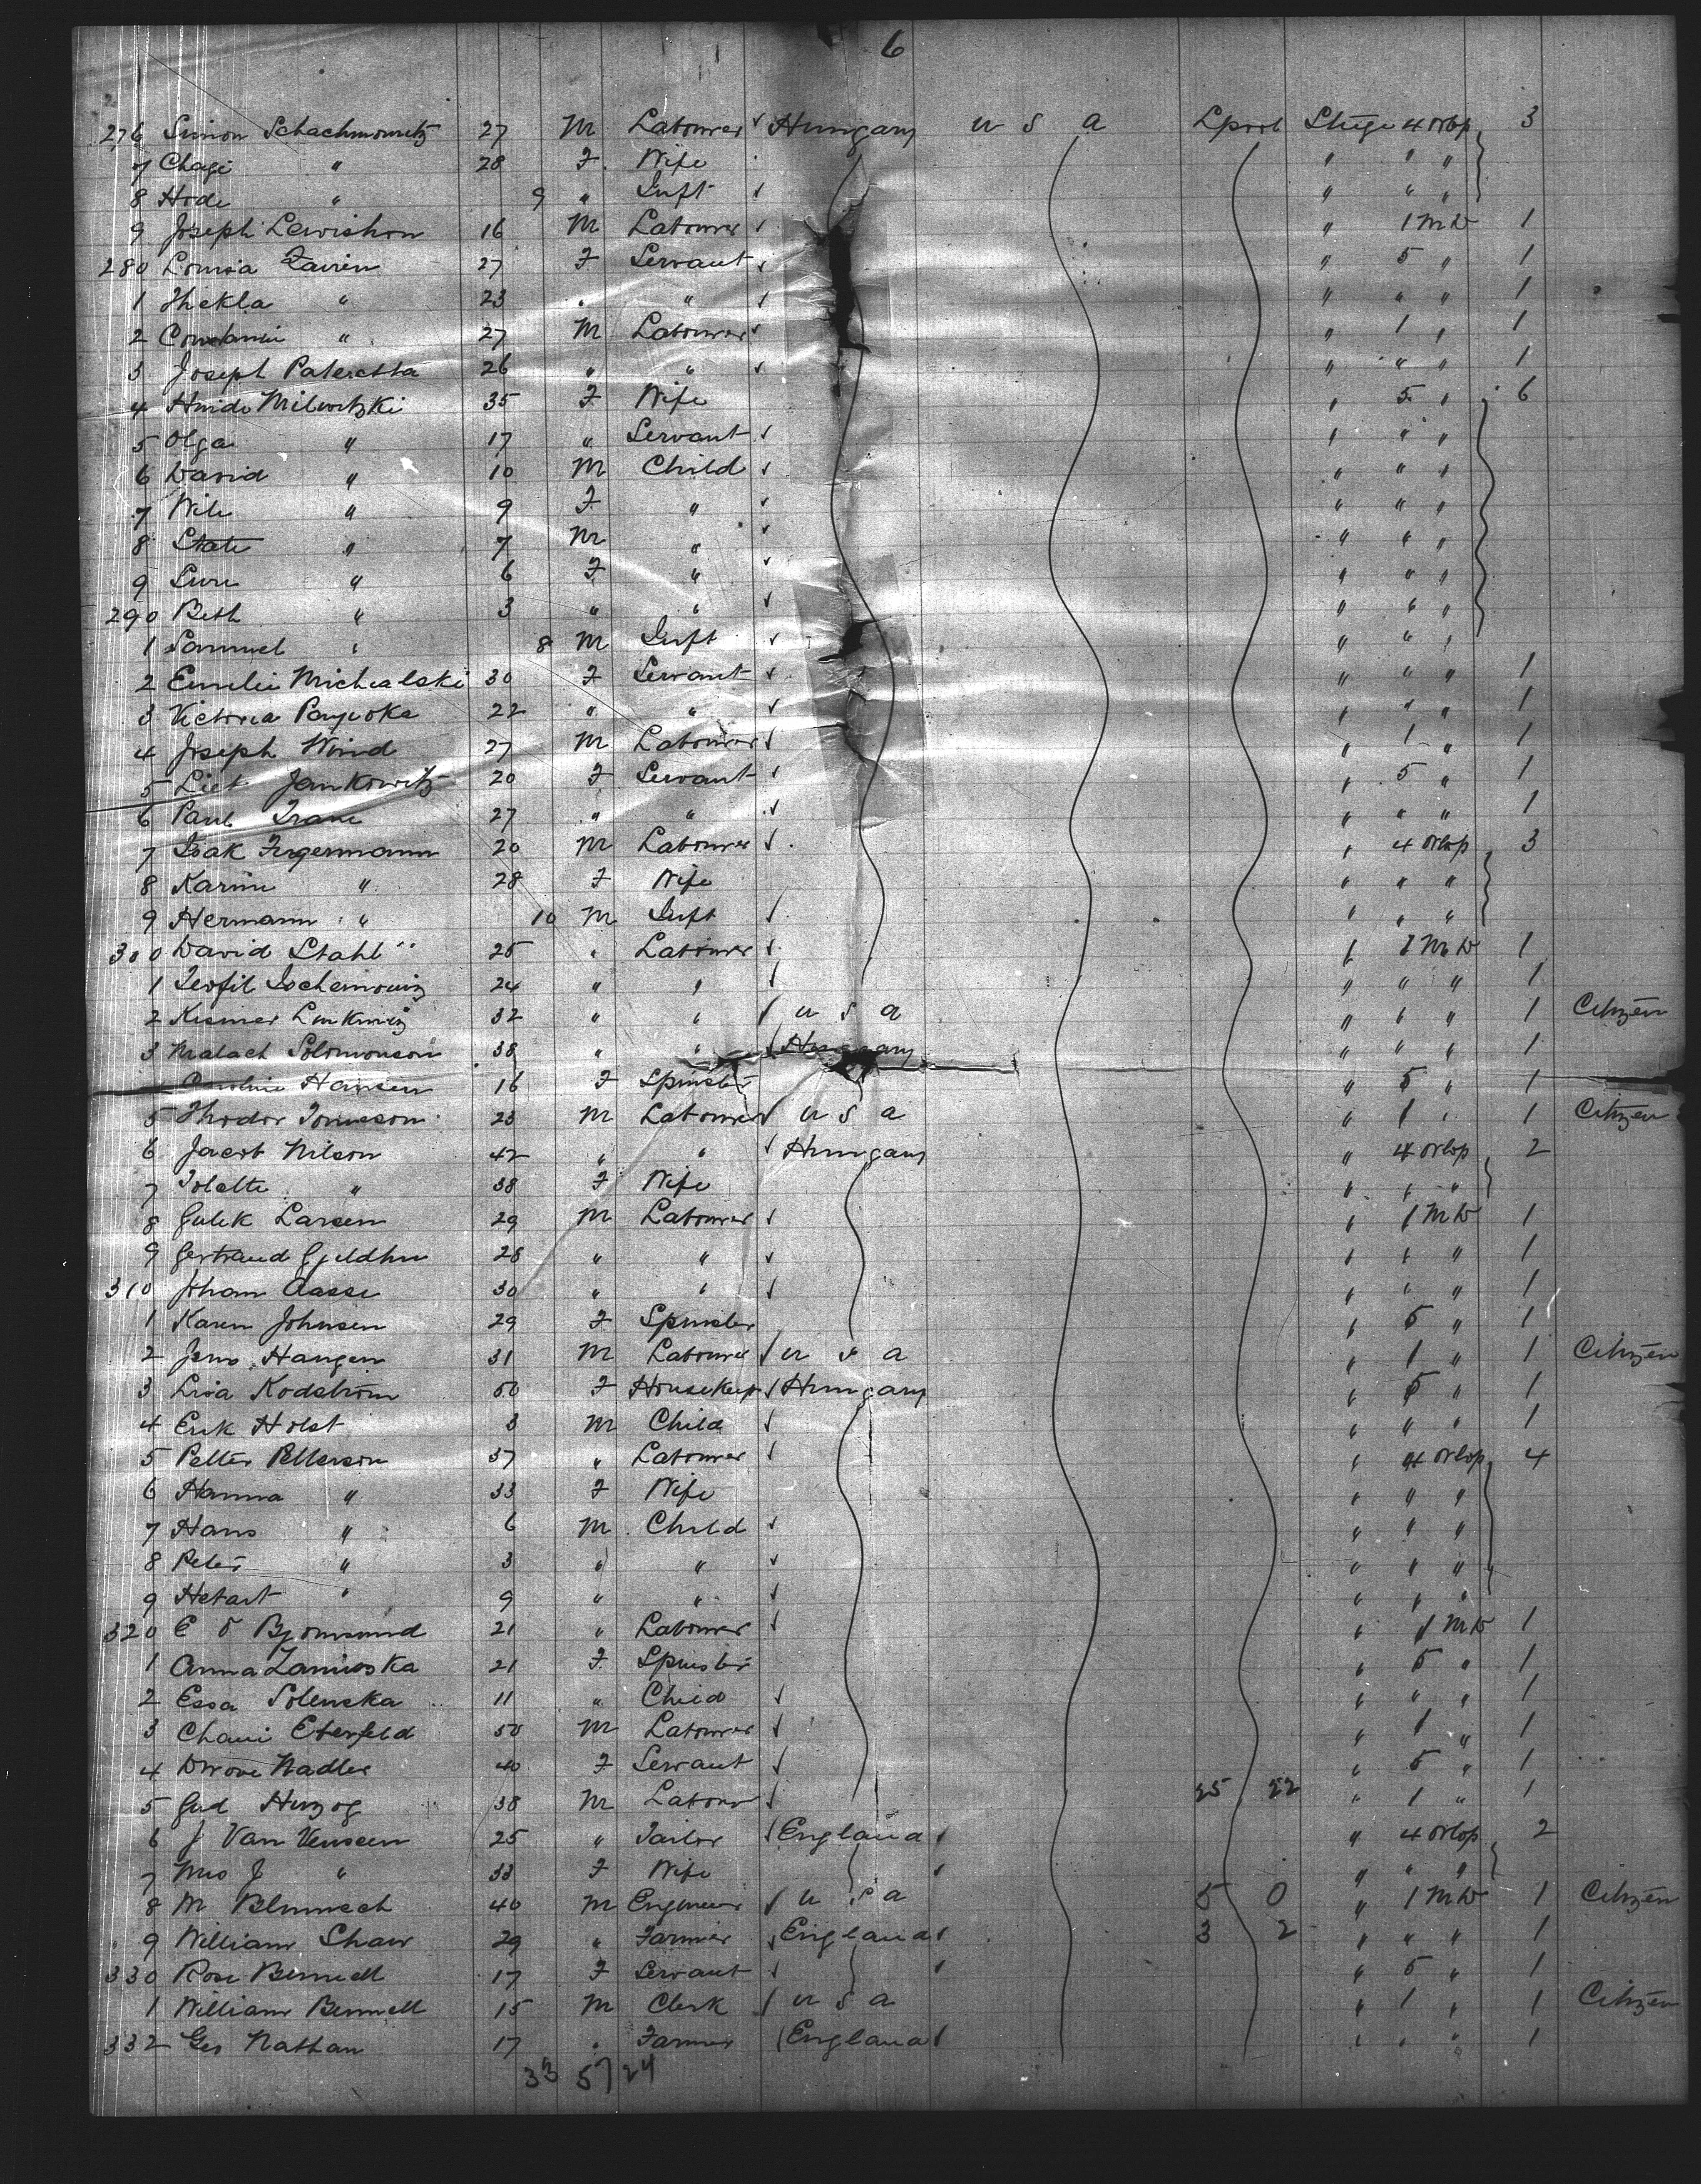 6
276 Simon Schachmowitz 27 M Labourer ✓ Hungary U S A Lpool Stege 4 Orlop 3
7 Chagi " 28 F Wife " " "
8 Hode " 9 " Inft ✓ " " "
9 Joseph Lewishon 16 M Labourer ✓ " 1 M W 1
280 Lousia 27 F Servant ✓ " 5 " 1
1 Thekla " 23 " " ✓ " " " 1
2 " 27 M Labourer ✓ " 1 " 1
3 Joseph 26 " " ✓ " " " 1
4 Hinde Milwitzki 35 F Wife " 5 " 6
5 Olga " 17 " Servant ✓ " " "
6 David " 10 M Child ✓ " " "
7 " 9 F " ✓ " " "
8 State " 7 M " ✓ " " "
9 " 6 F " ✓ " " "
290 Beth " 3 " " ✓ " " "
1 Samuel " 8 M Inft ✓ " " "
2 Emelie Michalski 30 F Servant ✓ " " " 1
3 Victoria 22 " " ✓ " " " 1
4 Joseph Wind 27 M Labourer ✓ " 1 " 1
5 Jankowitz 20 F Servant ✓ " 5 " 1
6 Paul 27 " " ✓ " " " 1
7 Isak 20 M Labourer ✓ " 4 Orlop 3
8 Karine " 28 F Wife " " "
9 Hermann " 10 M Inft ✓ " " "
300 David Stahl 25 " Labourer ✓ " 1 M W 1
1 Teofil 24 " " ✓ " " " 1
2 32 " " ✓ U S A " " " 1 Citizen
3 Malach Solomonson 38 " " ✓ Hungary " " " 1
Caroline Hansen 16 F Spinster " 5 " 1
5 Thodor 23 M Labourer ✓ U S A " 1 " 1 Citizen
6 Jacob Nilson 42 " " ✓ Hungary " 4 Orlop 2
7 " 38 F Wife " " "
8 Larsen 29 M Labourer ✓ " 1 M W 1
9 Gertraud 28 " " ✓ " " " 1
310 Johan Aasse 30 " " ✓ " " " 1
1 Karen Johnsen 29 F Spinster " 5 " 1
2 Jens Haugen 31 M Labourer ✓ U S A " 1 " 1 Citizen
3 Lisa Kodstrom 50 F Housekeep ✓ Hungary " 5 " 1
4 Erik Holst 3 M Child ✓ " " " 1
5 Petter Petterson 37 " Labourer ✓ " 4 Orlop 4
6 Hanna " 33 F Wife " " "
7 Hans " 6 M Child ✓ " " "
8 Peter " 3 " " ✓ " " "
9 " 9 " " ✓ " " "
320 E O 21 " Labourer ✓ " 1 M W 1
1 Anna 21 F Spinster " 5 " 1
2 Essa Solenska 11 " Child ✓ " " " 1
3 Chani Eberfeld 50 M Labourer ✓ " 1 " 1
4 Nadler 40 F Servant ✓ " 5 " 1
5 Herzog 38 M Labour ✓ 25 22 " 1 " 1
6 J Van 25 " Tailor ✓ England ✓ " 4 Orlop 2
7 Mrs J " 33 F Wife ✓ " " "
8 M 40 M Engineer ✓ U S A 5 0 " 1 M W 1 Citizen
9 William Shaw 29 " Farmer ✓ England ✓ 3 2 " " " 1
330 Rose Bennett 17 F Servant ✓ ✓ " 5 " 1
1 William Bennett 15 M Clerk ✓ U S A " 1 " 1 Citizen
332 Geo Nathan 17 " Farmer England ✓ " " " 1
33 57 24